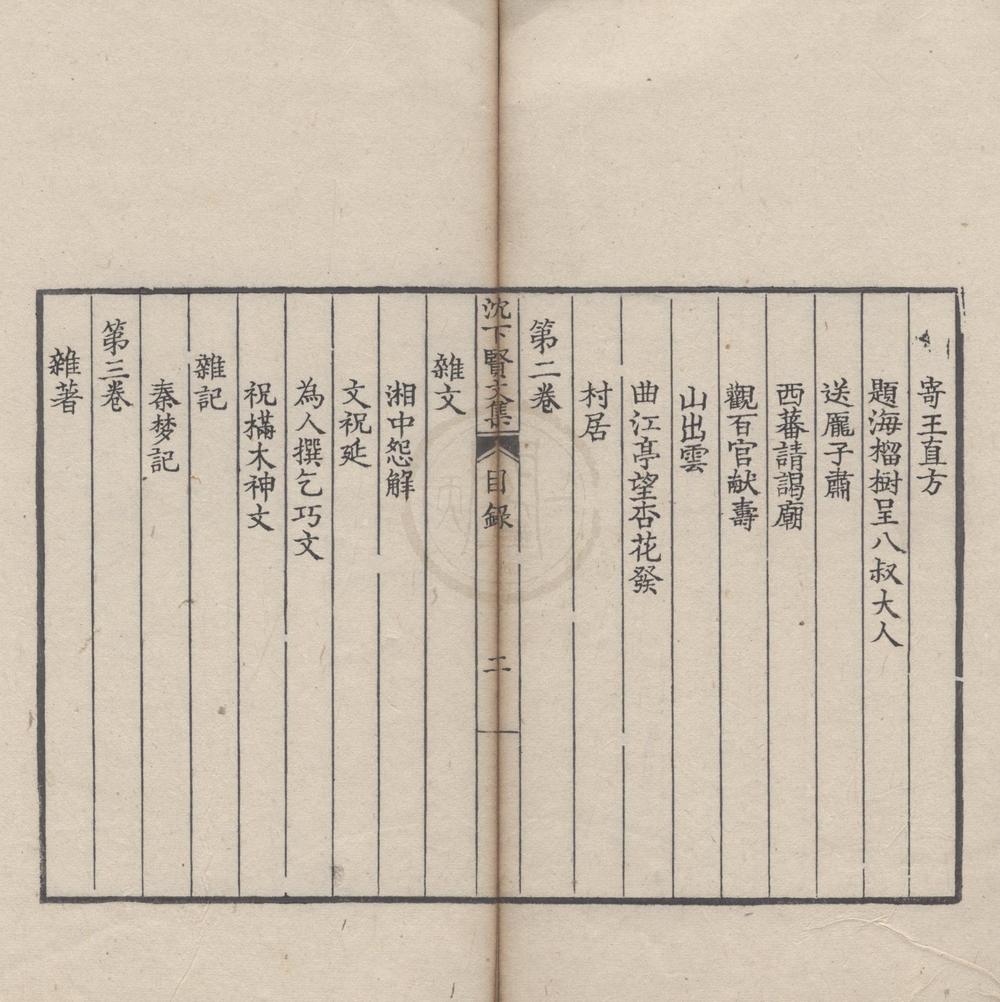 寄王直方
題海榴樹呈八叔大人
送龐子肅
西蕃請謁廟
觀百官献壽
山出雲
曲江亭望杏花發
村居
第二卷
沈下賢文集 目録 二
雜文
湘中怨解
文祝延
為人撰乞巧文
祝𣚣木神文
雜記
秦梦記
第三卷
雜著